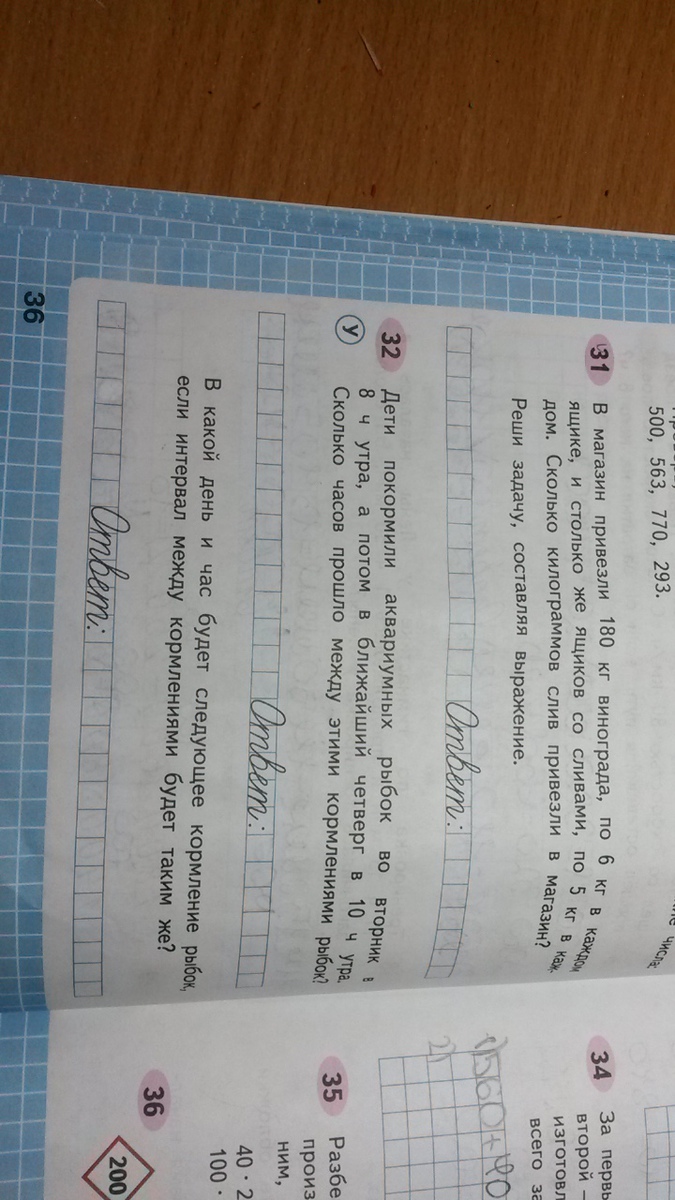 500, 563, 770, 293.
31 В магазин привезли 180 кг винограда, по 6 кг в каждом
ящике, и столько же ящиков со сливами, по 5 кг в каж-
дом. Сколько килограммов слив привезли в магазин?
Реши задачу, составляя выражение.
Ответ:
32 Дети покормили аквариумных рыбок во вторник в
У 8 ч утра, а потом в ближайший четверг в 10 ч утра.
Сколько часов прошло между этими кормлениями рыбок?
Ответ:
В какой день и час будет следующее кормление рыбок,
если интервал между кормлениями будет таким же?
Ответ:
36
числа:
34 За перв
второй —
изготовл
всего за
1) 560+40
2)
35 Разбе
произ
ним,
40 · 2
100 ·
36
200